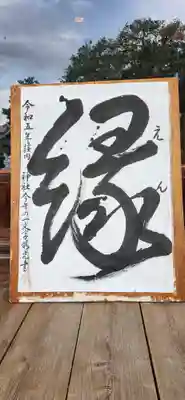 縁
えん
令和五年
神社今年の一文字